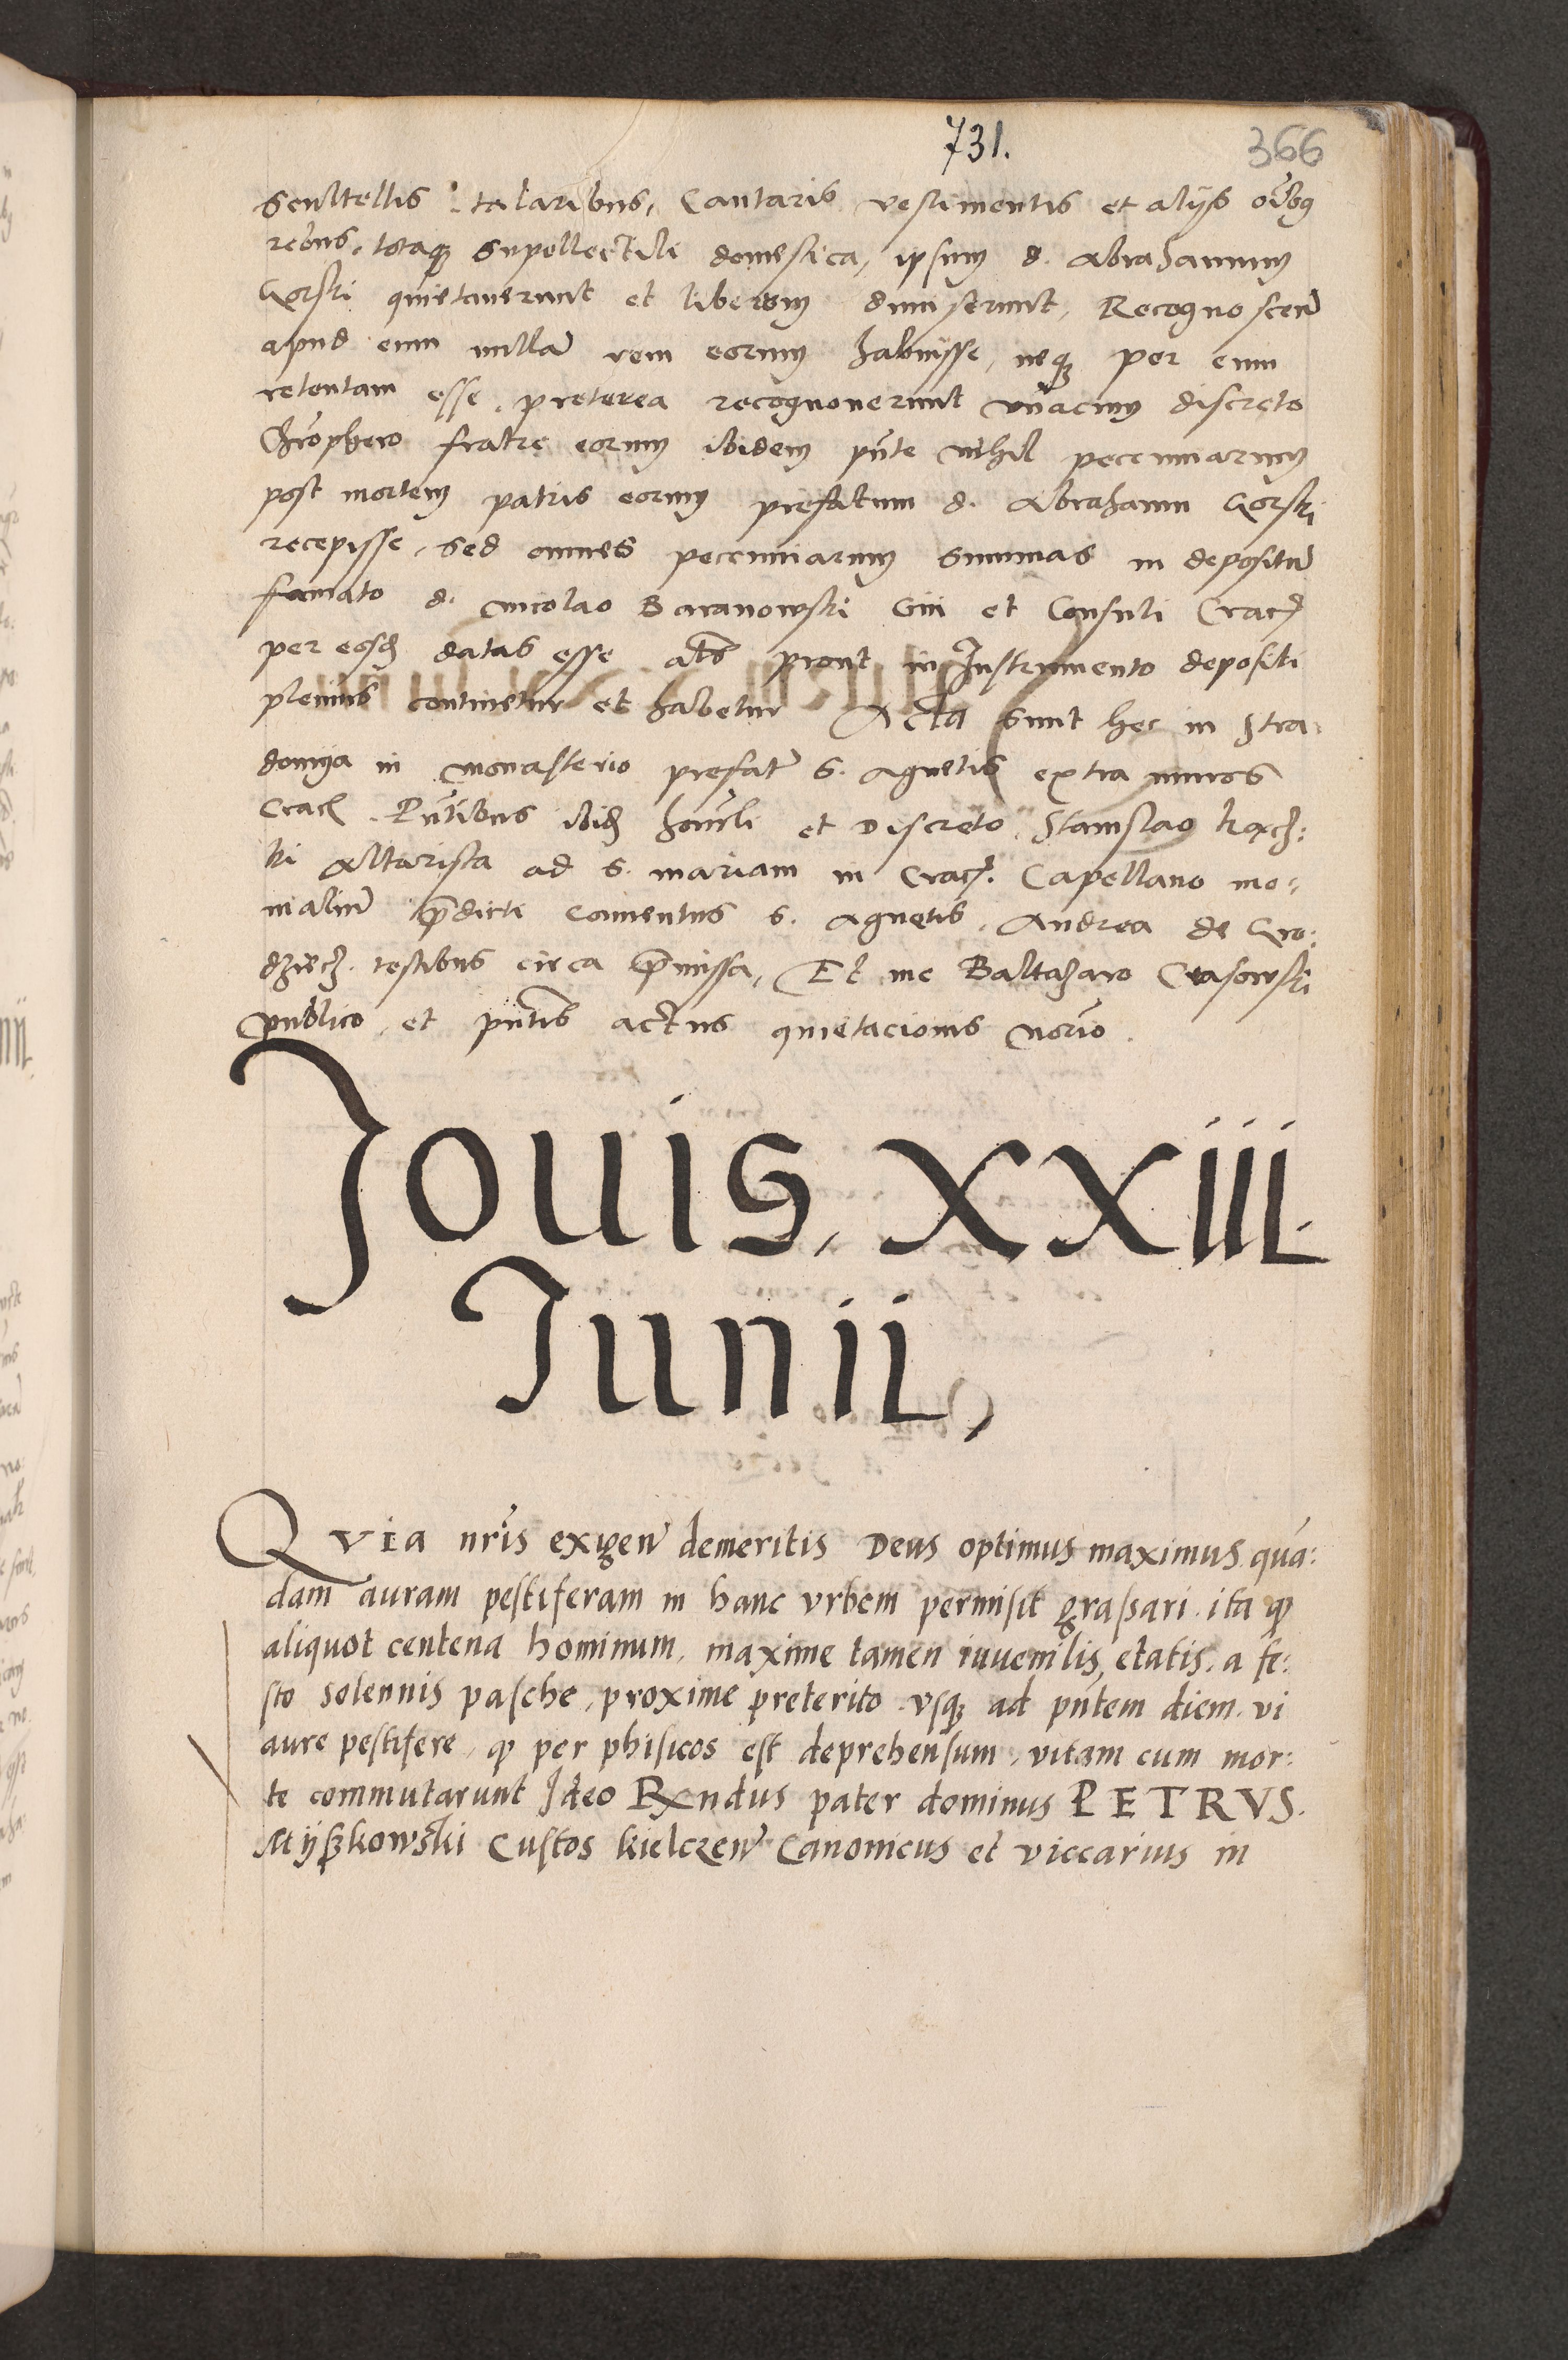 731.
366
scultellis talaribus, Cantaris vestimentis et alijs oībꝯ
rebus, totaqꝫ supellectili domestica, ipsum d. Abrahamum
Gorski quietaverunt et liberum dimiserunt, Recognoscen̄
apud eum nullā rem eorum habuisse, neqꝫ per eum
retentam esse. preterea recognoverunt vnacum discreto
Chrōphero fratre eorum ibidem pn̄te nihil pecuniarum
post mortem patris eorum prefatum d. Abrahamū Gorski
recepisse, sed omnes pecuniarum summas in depositū
famato d. nicolao Baranowski Civi et Consuli Crac
per eosd datas esse prout in Instrumento depositi
plenius continetur et habetur Acta sunt hec in Stra-
domya in monasterio prefat s. Agnetis extra muros
Crac. Pn̄tibus ibid honli et Discreto Stanislao
ki Altarista ad s. mariam in Crac. Capellano mo-
nialiū p̄dicti conventus s. Agnetis, Andrea de Gro:
dziecz. testibus circa p̄missa, Et me Baltazaro Crasowski
publico et pn̄tis actus quietacionis no͞rio.
Jouis, XXiii.
Junii,
Qvia nr̄is exigen̄ demeritis Deus optimus maximus quā:
dam auram pestiferam in hanc vrbem permisit graßari. ita qꝫ
aliquot centena hominum, maxime tamen iuuenilis etatis. a fe:
sto solennis pasche, proxime preterito vsqꝫ ad pn̄tem diem. vi
aure pestifere, qꝫ per phisicos est deprehensum, vitam cum mor:
te commutarunt Ideo Rxndus pater dominus PETRVS.
Myßkowski Custos kielczen̄ Canonicus et viccarius in